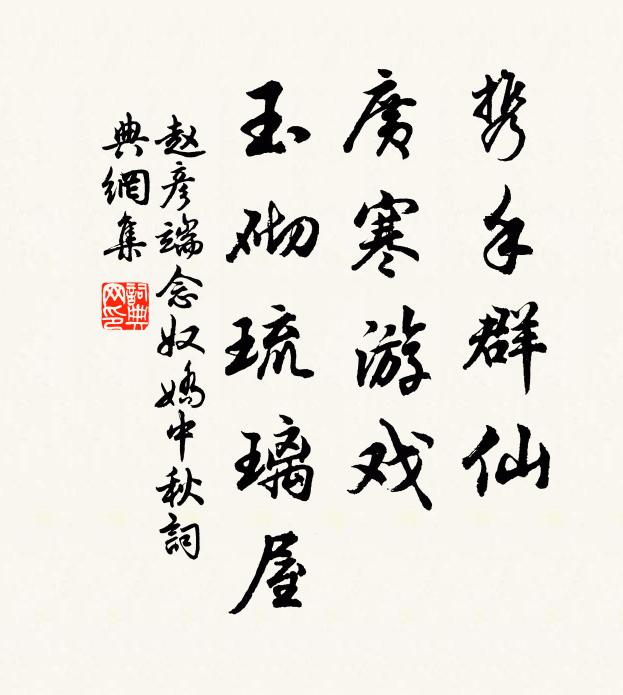 携手群仙
廣寒游戏
玉砌琉璃屋
赵彦端念奴嬌中秋詞
典網集
詞典
网印